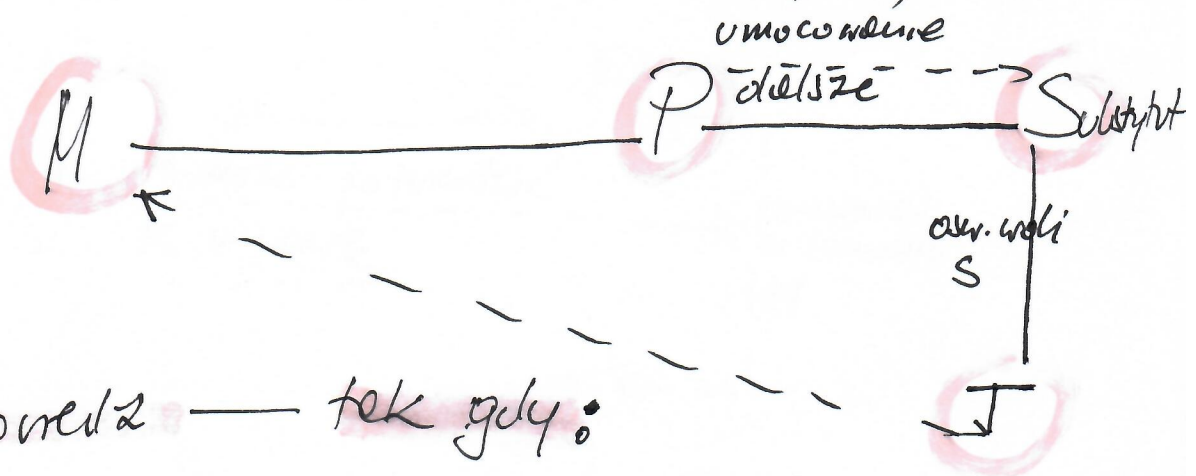 umocowanie
dalsze
M
P
Substytut
ośw. woli
S
T
owiedź — tak gdy: